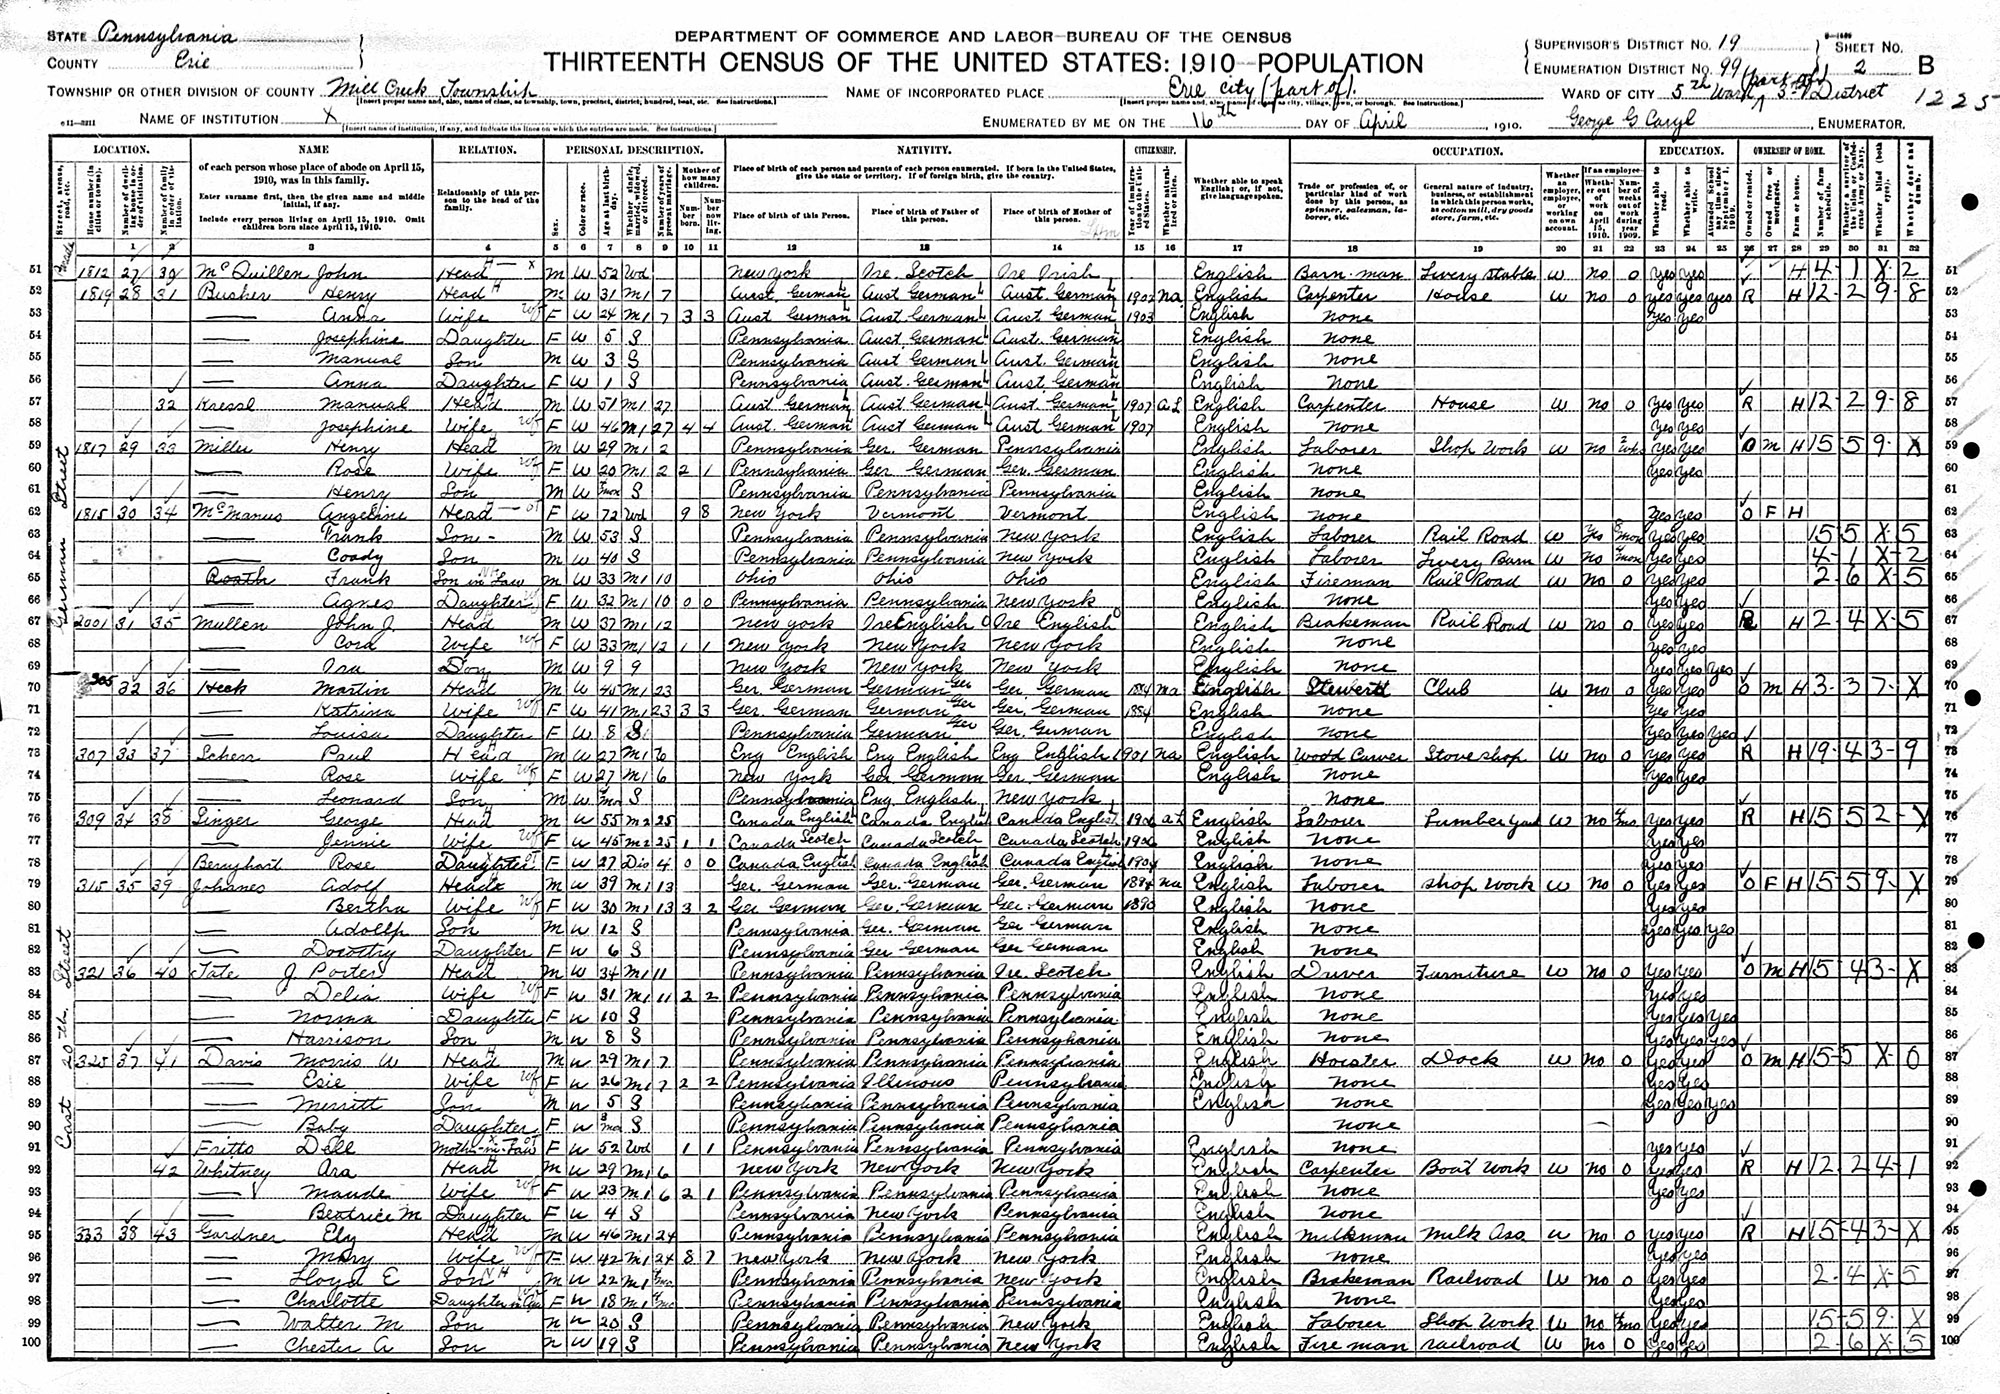 STATE Pennsylvania
COUNTY Erie
DEPARTMENT OF COMMERCE AND LABOR—BUREAU OF THE CENSUS
THIRTEENTH CENSUS OF THE UNITED STATES: 1910—POPULATION
SUPERVISOR'S DISTRICT No. 19
ENUMERATION DISTRICT No. 99 (part of)
SHEET No. 2 B
TOWNSHIP OR OTHER DIVISION OF COUNTY Mill Creek Township
NAME OF INCORPORATED PLACE Erie city (part of).
WARD OF CITY 5th Ward, 3rd District
1225
NAME OF INSTITUTION X
ENUMERATED BY ME ON THE 16th DAY OF April, 1910. George G Caryl, ENUMERATOR.
LOCATION. NAME RELATION. PERSONAL DESCRIPTION. NATIVITY. CITIZENSHIP. OCCUPATION. EDUCATION. OWNERSHIP OF HOME.
of each person whose place of abode on April 15, 1910, was in this family.
Enter surname first, then the given name and middle initial, if any.
Include every person living on April 15, 1910. Omit children born since April 15, 1910.
Relationship of this person to the head of the family.
Place of birth of each person and parents of each person enumerated. If born in the United States, give the state or territory. If of foreign birth, give the country.
Place of birth of this Person. Place of birth of Father of this person. Place of birth of Mother of this person.
Whether able to speak English; or, if not, give language spoken.
Trade or profession of, or particular kind of work done by this person, as spinner, salesman, laborer, etc.
General nature of industry, business, or establishment in which this person works, as cotton mill, dry goods store, farm, etc.
51 1812 27 30 McQuillen John Head M W 52 Wd New York Ire. Scotch Ire Irish English Barn man Livery stable W no 0 yes yes H 4-1 X-2 51
52 1819 28 31 Busher Henry Head M W 31 M1 7 Aust. German Aust German Aust. German 1902 na English Carpenter House W no 0 yes yes yes R H 12-2 9-8 52
53 Anna Wife F W 24 M1 7 3 3 Aust German Aust German Aust German 1903 English none yes yes 53
54 Josephine Daughter F W 5 S Pennsylvania Aust. German Aust. German English none 54
55 Manual Son M W 3 S Pennsylvania Aust. German Aust. German English none 55
56 Anna Daughter F W 1 S Pennsylvania Aust. German Aust. German English none 56
57 32 Kressl Manual Head M W 51 M1 27 Aust German Aust German Aust. German 1907 al English Carpenter House W no 0 yes yes R H 12-2 9-8 57
58 Josephine Wife F W 46 M1 27 4 4 Aust. German Aust German Aust. German 1907 English none 58
59 1817 29 33 Miller Henry Head M W 29 M1 2 Pennsylvania Ger. German Pennsylvania English Laborer Shop Work W no 2 wks yes yes O M H 15-5 9-X 59
60 Rose Wife F W 20 M1 2 2 1 Pennsylvania Ger German Ger. German English none yes yes 60
61 Henry Son M W mos S Pennsylvania Pennsylvania Pennsylvania English none 61
62 1815 30 34 McManus Angeline Head F W 72 Wd 9 8 New York Vermont Vermont English none yes yes O F H 62
63 Frank Son M W 53 S Pennsylvania Pennsylvania New York English Laborer Rail Road W yes 8 mos yes yes 15-5 X-5 63
64 Coady Son M W 40 S Pennsylvania Pennsylvania New York English Laborer Livery Barn W no mos yes yes 4-1 X-2 64
65 Roath Frank Son in Law M W 33 M1 10 Ohio Ohio Ohio English Fireman Rail Road W no 0 yes yes 2-6 X-5 65
66 Agnes Daughter F W 32 M1 10 0 0 Pennsylvania Pennsylvania New York English none yes yes 66
67 2001 31 35 Mullen John J. Head M W 37 M1 12 New York Ire English Ire English English Brakeman Rail Road W no 0 yes yes R H 2-4 X-5 67
68 Cora Wife F W 33 M1 12 1 1 New York New York New York English none yes yes 68
69 Ira Son M W 9 9 New York New York New York English none yes yes yes 69
70 305 32 36 Heck Martin Head M W 45 M1 23 Ger. German German Ger Ger. German 1884 na English Stewert Club W no 0 yes yes O M H 3-3 7-X 70
71 Katrina Wife F W 41 M1 23 3 3 Ger. German German Ger Ger. German 1884 English none yes yes 71
72 Louisa Daughter F W 8 S Pennsylvania German Ger Ger. German English none yes yes yes 72
73 307 33 37 Scherr Paul Head M W 27 M1 6 Eng English Eng English Eng English 1901 na English Wood Carver Stove shop W no 0 yes yes R H 19-4 3-9 73
74 Rose Wife F W 27 M1 6 New York Ger German Ger. German English none yes yes 74
75 Leonard Son M W mos S Pennsylvania Eng English New York none 75
76 309 34 38 Singer George Head M W 55 M2 25 Canada English Canada English Canada English 1906 al English Laborer Lumber yard W no 4 mo yes yes R H 15-5 2-X 76
77 Jennie Wife F W 45 M2 25 1 1 Canada Scotch Canada Scotch Canada Scotch 1906 English none yes yes 77
78 Berryhart Rose Daughter F W 27 Dis 4 0 0 Canada English Canada English Canada English 1904 English none yes yes 78
79 315 35 39 Johanes Adolf Head M W 39 M1 13 Ger. German Ger. German Ger. German 1884 na English Laborer Shop Work W no 0 yes yes O F H 15-5 9-X 79
80 Bertha Wife F W 30 M1 13 3 2 Ger German Ger. German Ger. German 1890 English none yes yes 80
81 Adolph Son M W 12 S Pennsylvania Ger. German Ger German English none yes yes yes 81
82 Dorothy Daughter F W 6 S Pennsylvania Ger German Ger German English none 82
83 321 36 40 Tate J. Porter Head M W 34 M1 11 Pennsylvania Pennsylvania Ire. Scotch English Driver Furniture W no 0 yes yes O M H 15-4 3-X 83
84 Delia Wife F W 31 M1 11 2 2 Pennsylvania Pennsylvania Pennsylvania English none yes yes 84
85 Norma Daughter F W 10 S Pennsylvania Pennsylvania Pennsylvania English none yes yes yes 85
86 Harrison Son M W 8 S Pennsylvania Pennsylvania Pennsylvania English none yes yes yes 86
87 325 37 41 Davis Morris W Head M W 29 M1 7 Pennsylvania Pennsylvania Pennsylvania English Hoister Dock W no 0 yes yes O M H 15-5 X-0 87
88 Esie Wife F W 26 M1 7 2 2 Pennsylvania Illinous Pennsylvania English none yes yes 88
89 Merritt Son M W 5 S Pennsylvania Pennsylvania Pennsylvania English none yes yes yes 89
90 Baby Daughter F W mos S Pennsylvania Pennsylvania Pennsylvania none 90
91 Fritto Dell Mother-in-Law F W 52 Wd 1 1 Pennsylvania Pennsylvania Pennsylvania English none yes yes 91
92 42 Whitney Ara Head M W 29 M1 6 New York New York New York English Carpenter Boat Work W no 0 yes yes R H 12-2 4-1 92
93 Maude Wife F W 23 M1 6 2 1 Pennsylvania Pennsylvania Pennsylvania English none yes yes 93
94 Beatrice M Daughter F W 4 S Pennsylvania New York Pennsylvania English none 94
95 333 38 43 Gardner Ely Head M W 46 M1 24 Pennsylvania Pennsylvania Pennsylvania English Milkman Milk Aso. W no 0 yes yes R H 15-4 3-X 95
96 Mary Wife F W 42 M1 24 8 7 New York New York New York English none yes yes 96
97 Lloyd E Son M W 22 M1 Pennsylvania Pennsylvania New York English Brakeman Railroad W no 0 yes yes 2-4 X-5 97
98 Charlotte Daughter in law F W 18 M1 Pennsylvania Pennsylvania Pennsylvania English none yes yes 98
99 Walter M Son M W 20 S Pennsylvania Pennsylvania New York English Laborer Shop Work W no 4 mo yes yes 15-5 9-X 99
100 Chester A Son M W 19 S Pennsylvania Pennsylvania New York English Fire man railroad W no 0 yes yes 2-6 X-5 100
German Street
East 20th. Street